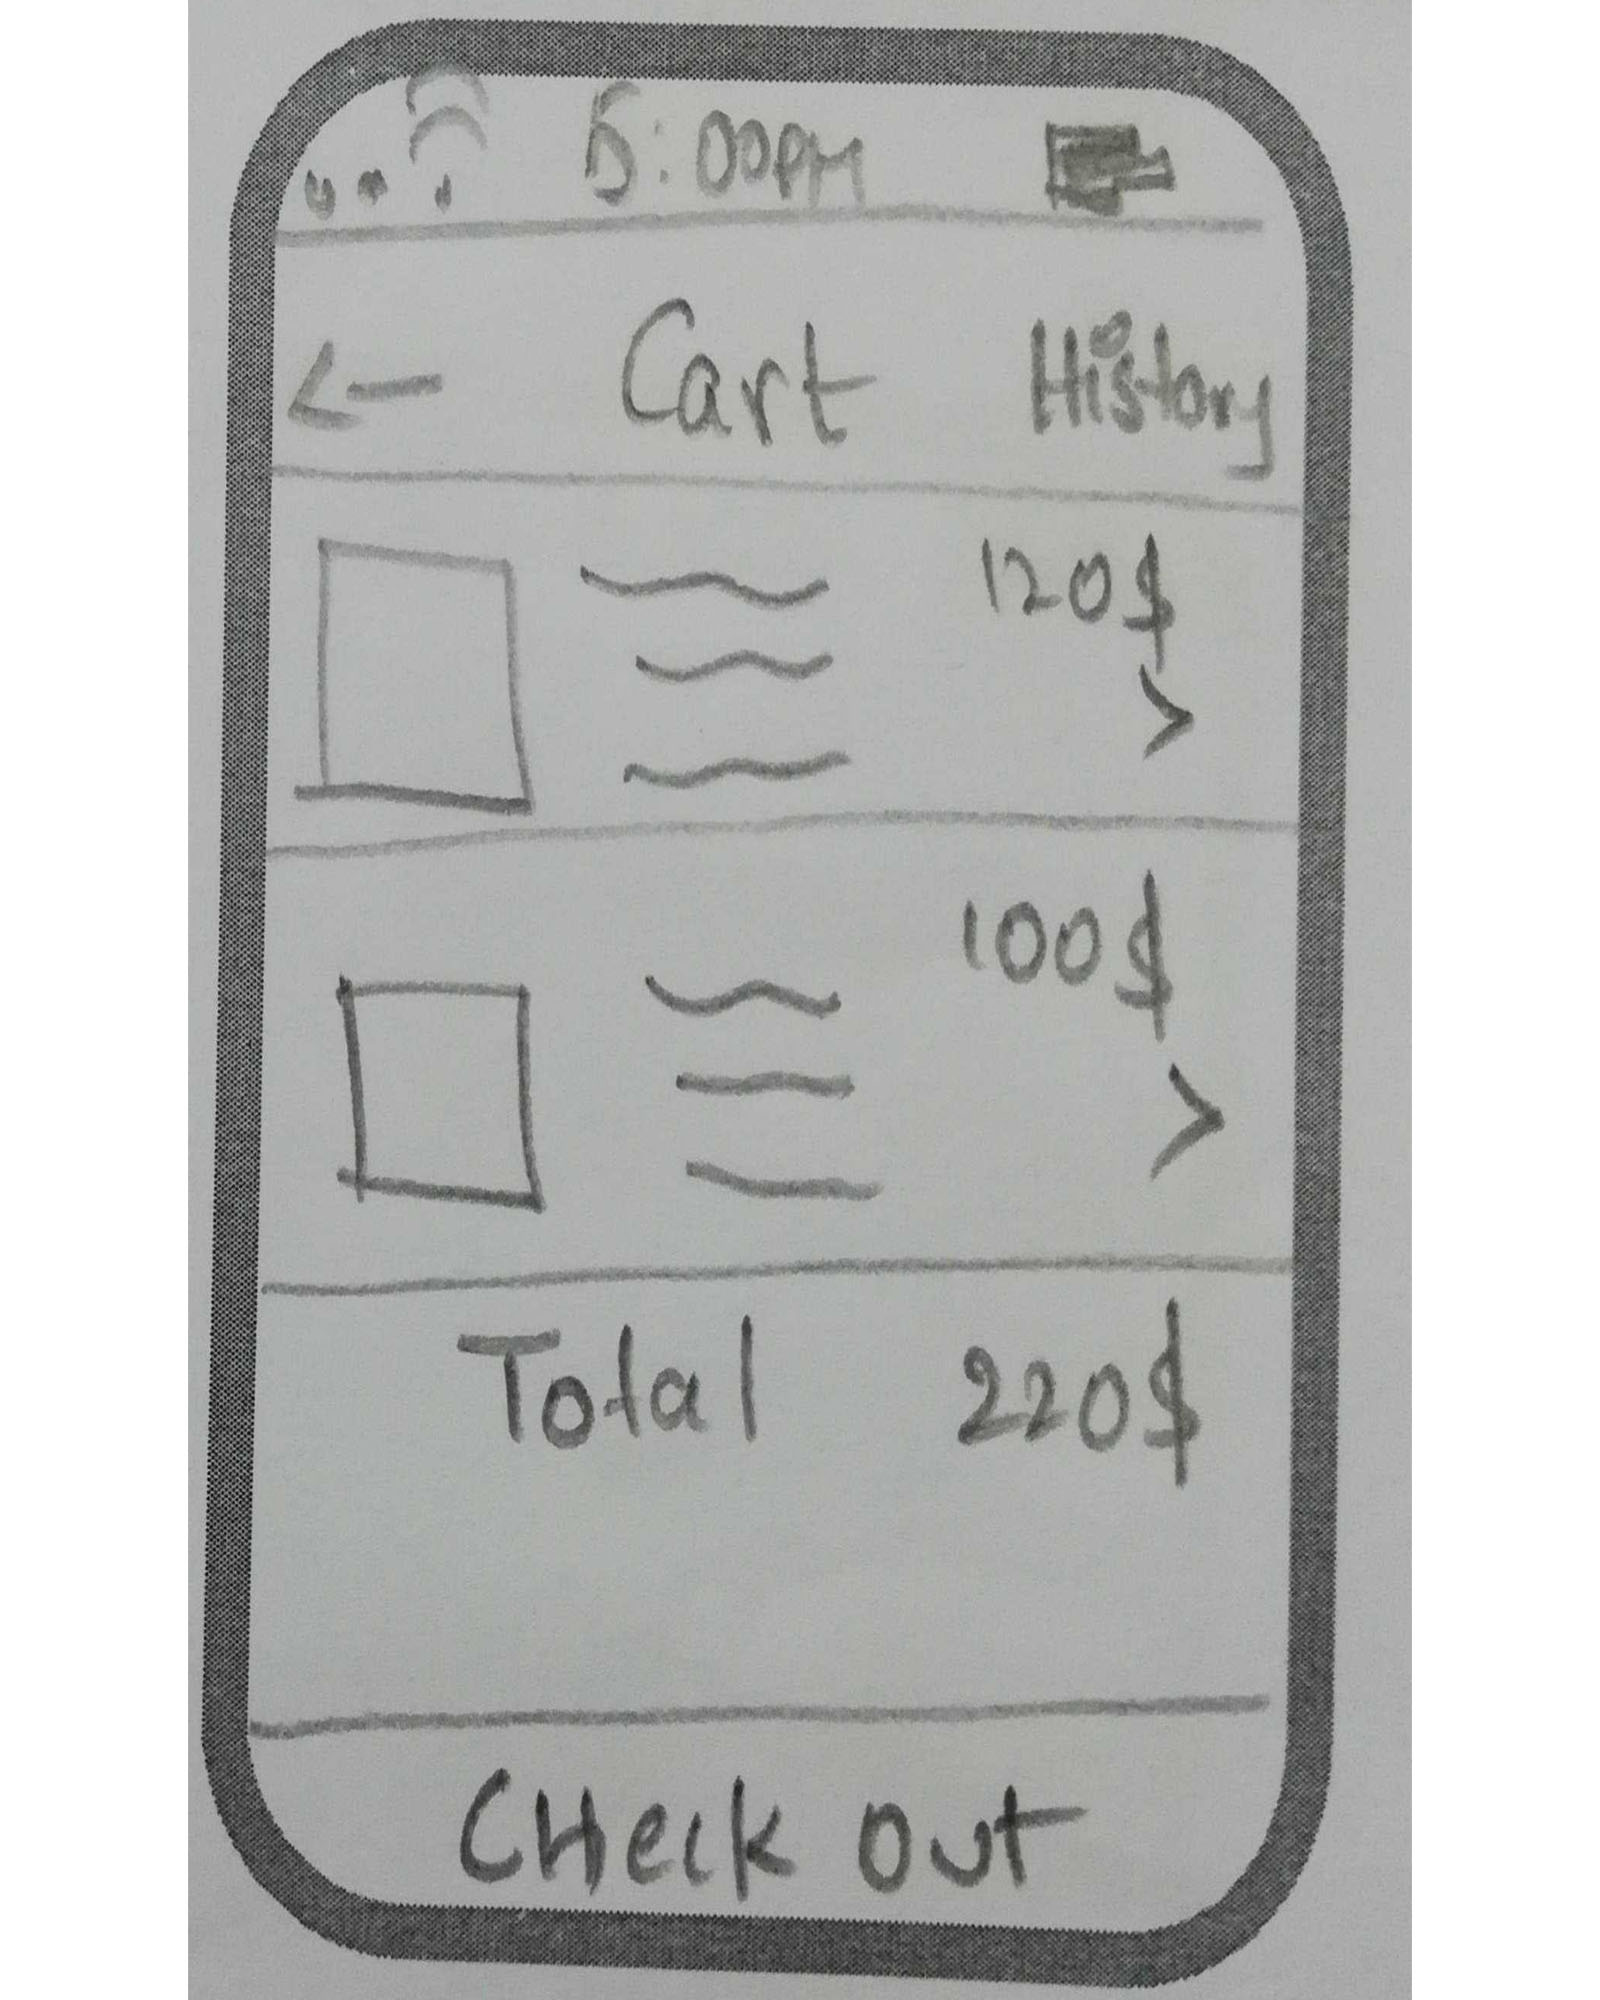 5:00PM
<- Cart History
120$
>
100$
>
Total 220$
CHeck out